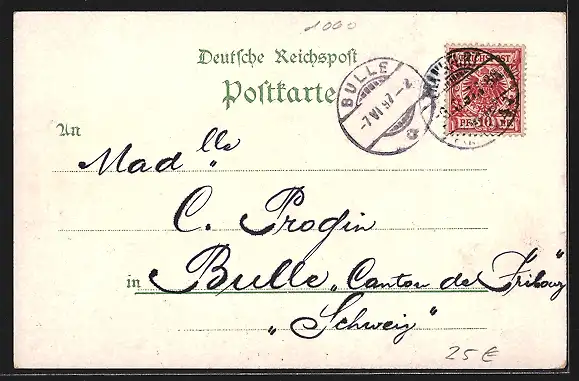 1000
Deutsche Reichspost
Postkarte
BULLE
-7 VI 97 - 2
REICHSPOST
PF 10 PF
An
Mad lle "
C. Progin
in Bulle „Canton de Fribourg"
„Schweiz"
25 €